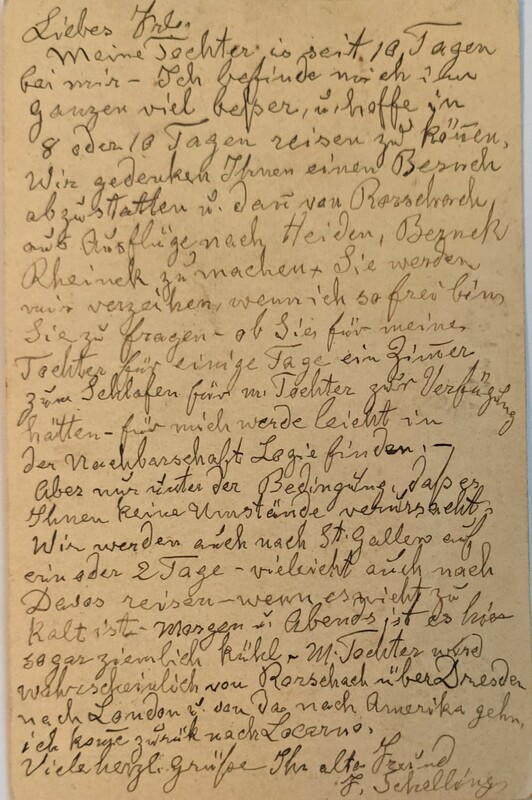 Liebes Frl.
Meine Tochter is seit 10 Tagen
bei mir - Ich befinde mich im
ganzen viel beßer, u. hoffe in
8 oder 10 Tagen reisen zu kön̅en.
Wir gedenken Ihnen einen Besuch
abzustatten u. dan̅ von Rorschach
aus Ausflüge nach Heiden, Berneck
Rheinek zu machen. Sie werden
mir verzeihen, wenn ich so frei bin,
Sie zu fragen - ob Sie für meine
Tochter für einige Tage ein Zim̅er
zum Schlafen für m. Tochter zur Verfügung
hätten - für mich werde leicht in
der Nachbarschaft Logie finden. -
Aber nur unter der Bedingung, daß es
Ihnen keine Umstände verursacht.
Wir werden auch nach St. Gallen auf
ein oder 2 Tage - vieleicht auch nach
Davos reisen - wenn es nicht zu
kalt ist - Morgen u. Abends ist es hier
sogar ziemlich kühl. M. Tochter wird
wahrscheinlich von Rorschach über Dresden
nach London u. von da nach Amerika gehn,
ich kom̅e zurük nach Locarno.
Viele herzl. Grüße Ihr alter Freund
F. Schelling